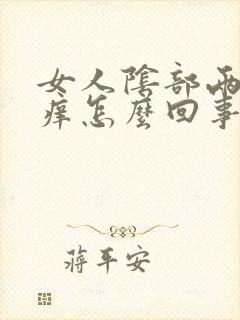 女人陰部兩
癢怎麼回事
蔣平安